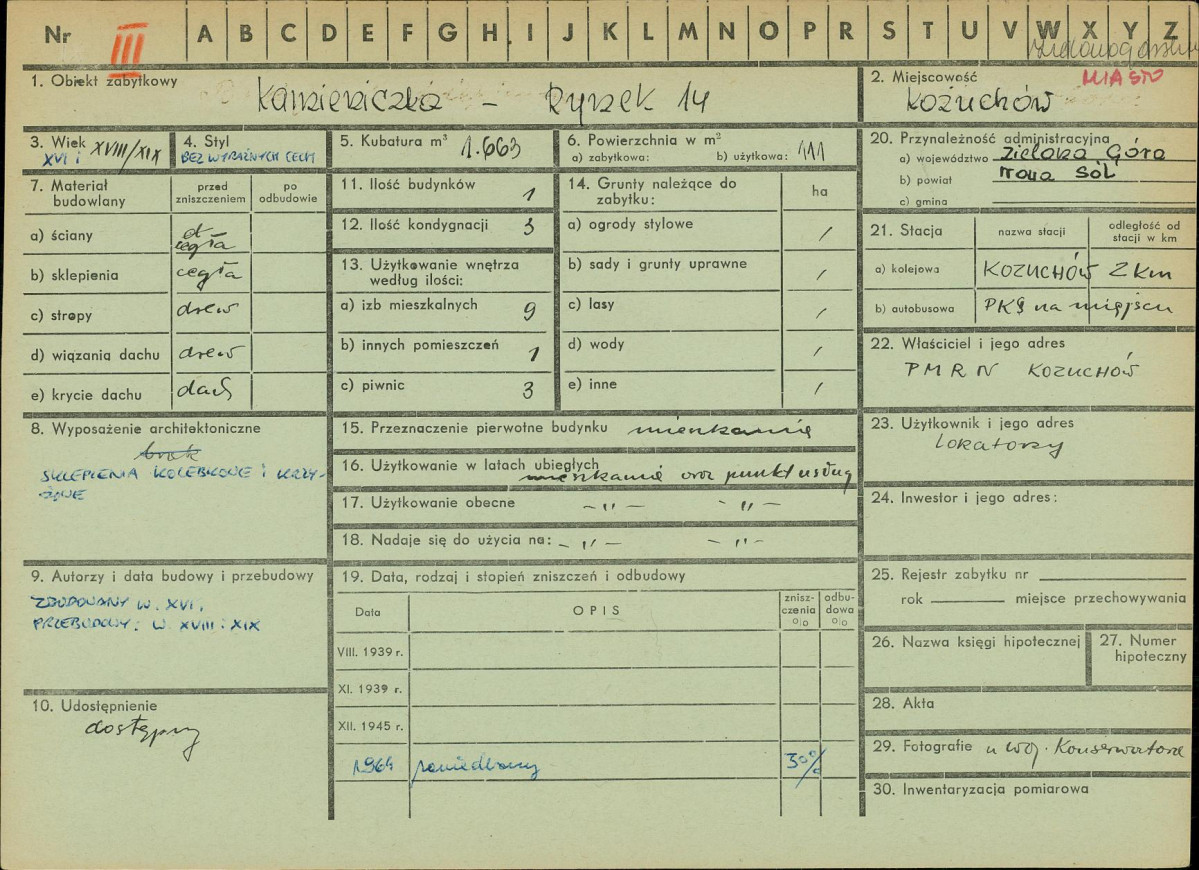 Nr III A B C D E F G H I J K L M N O P R S T U V W X Y Z
1. Obiekt zabytkowy
Kamieniczka – Rynek 14
2. Miejscowość MIASTO
Kożuchów
3. Wiek XVI i XVIII/XIX
4. Styl
BEZ WYRAŹNYCH CECH
5. Kubatura m³ 1.663
6. Powierzchnia w m²
a) zabytkowa: b) użytkowa: 111
20. Przynależność administracyjna
a) województwo Zielona Góra
b) powiat Nowa Sól
c) gmina
7. Materiał budowlany
przed zniszczeniem
po odbudowie
a) ściany cegła
b) sklepienia cegła
c) stropy drew
d) wiązania dachu drew
e) krycie dachu dach
11. Ilość budynków 1
12. Ilość kondygnacji 3
13. Użytkowanie wnętrza
według ilości:
a) izb mieszkalnych 9
b) innych pomieszczeń 1
c) piwnic 3
14. Grunty należące do
zabytku:
ha
a) ogrody stylowe /
b) sady i grunty uprawne /
c) lasy /
d) wody /
e) inne /
21. Stacja
nazwa stacji
odległość od
stacji w km
a) kolejowa KOŻUCHÓW 2 km
b) autobusowa PKS na miejscu
22. Właściciel i jego adres
PMRN KOŻUCHÓW
8. Wyposażenie architektoniczne
brak
SKLEPIENIA KOLEBKOWE I KRZY-
ŻOWE
15. Przeznaczenie pierwotne budynku mieszkanie
16. Użytkowanie w latach ubiegłych
mieszkanie oraz punkt usług
17. Użytkowanie obecne –„– –„–
18. Nadaje się do użycia na: –„– –„–
23. Użytkownik i jego adres
Lokatorzy
24. Inwestor i jego adres:
9. Autorzy i data budowy i przebudowy
ZBUDOWANY W. XVI,
PRZEBUDOWY: W. XVIII i XIX
19. Data, rodzaj i stopień zniszczeń i odbudowy
Data
OPIS
znisz-
czenia
%
odbu-
dowa
%
VIII. 1939 r.
XI. 1939 r.
XII. 1945 r.
1964 zaniedbany 30%
25. Rejestr zabytku nr
rok miejsce przechowywania
26. Nazwa księgi hipotecznej
27. Numer
hipoteczny
10. Udostępnienie
dostępny
28. Akta
29. Fotografie u Woj. Konserwatora
30. Inwentaryzacja pomiarowa